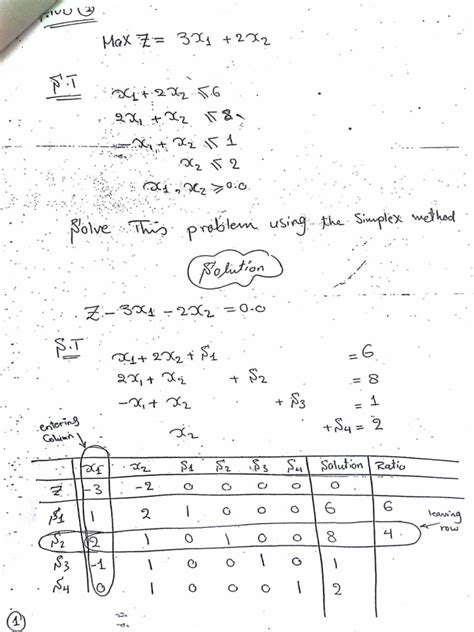 Max Z = 3x1 + 2x2
S.T
x1 + 2x2 ≤ 6
2x1 + x2 ≤ 8
-x1 + x2 ≤ 1
x2 ≤ 2
x1, x2 ≥ 0.0
Solve This problem using the Simplex method
Solution
Z - 3x1 - 2x2 = 0.0
S.T
x1 + 2x2 + S1 = 6
2x1 + x2 + S2 = 8
-x1 + x2 + S3 = 1
x2 + S4 = 2
entering
Column
x1 x2 S1 S2 S3 S4 Solution Ratio
Z -3 -2 0 0 0 0 0
S1 1 2 1 0 0 0 6 6
leaving
row
S2 2 1 0 1 0 0 8 4
S3 -1 1 0 0 1 0 1
S4 0 1 0 0 0 1 2
1